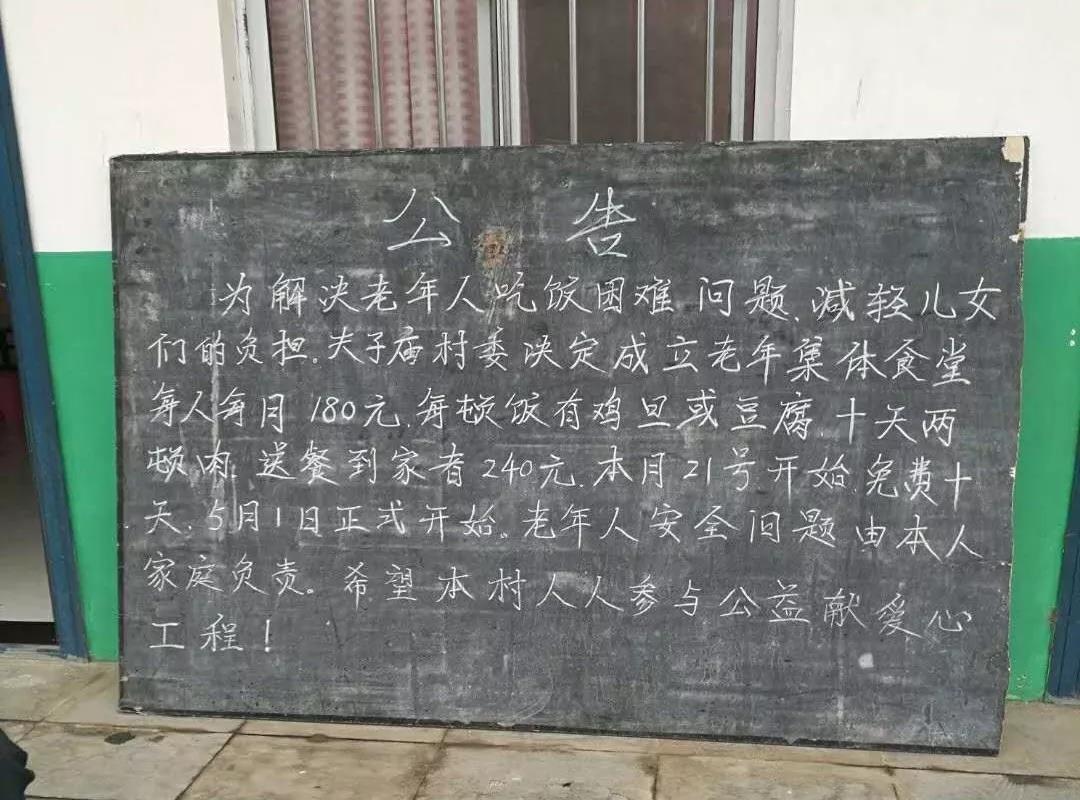 公 告
为解决老年人吃饭困难问题、减轻儿女
们的负担。夫子庙村委决定成立老年集体食堂
每人每月180元.每顿饭有鸡旦或豆腐.十天两
顿肉.送餐到家者240元.本月21号开始.免费十
天.5月1日正式开始。老年人安全问题由本人
家庭负责。希望本村人人参与公益献爱心
工程！